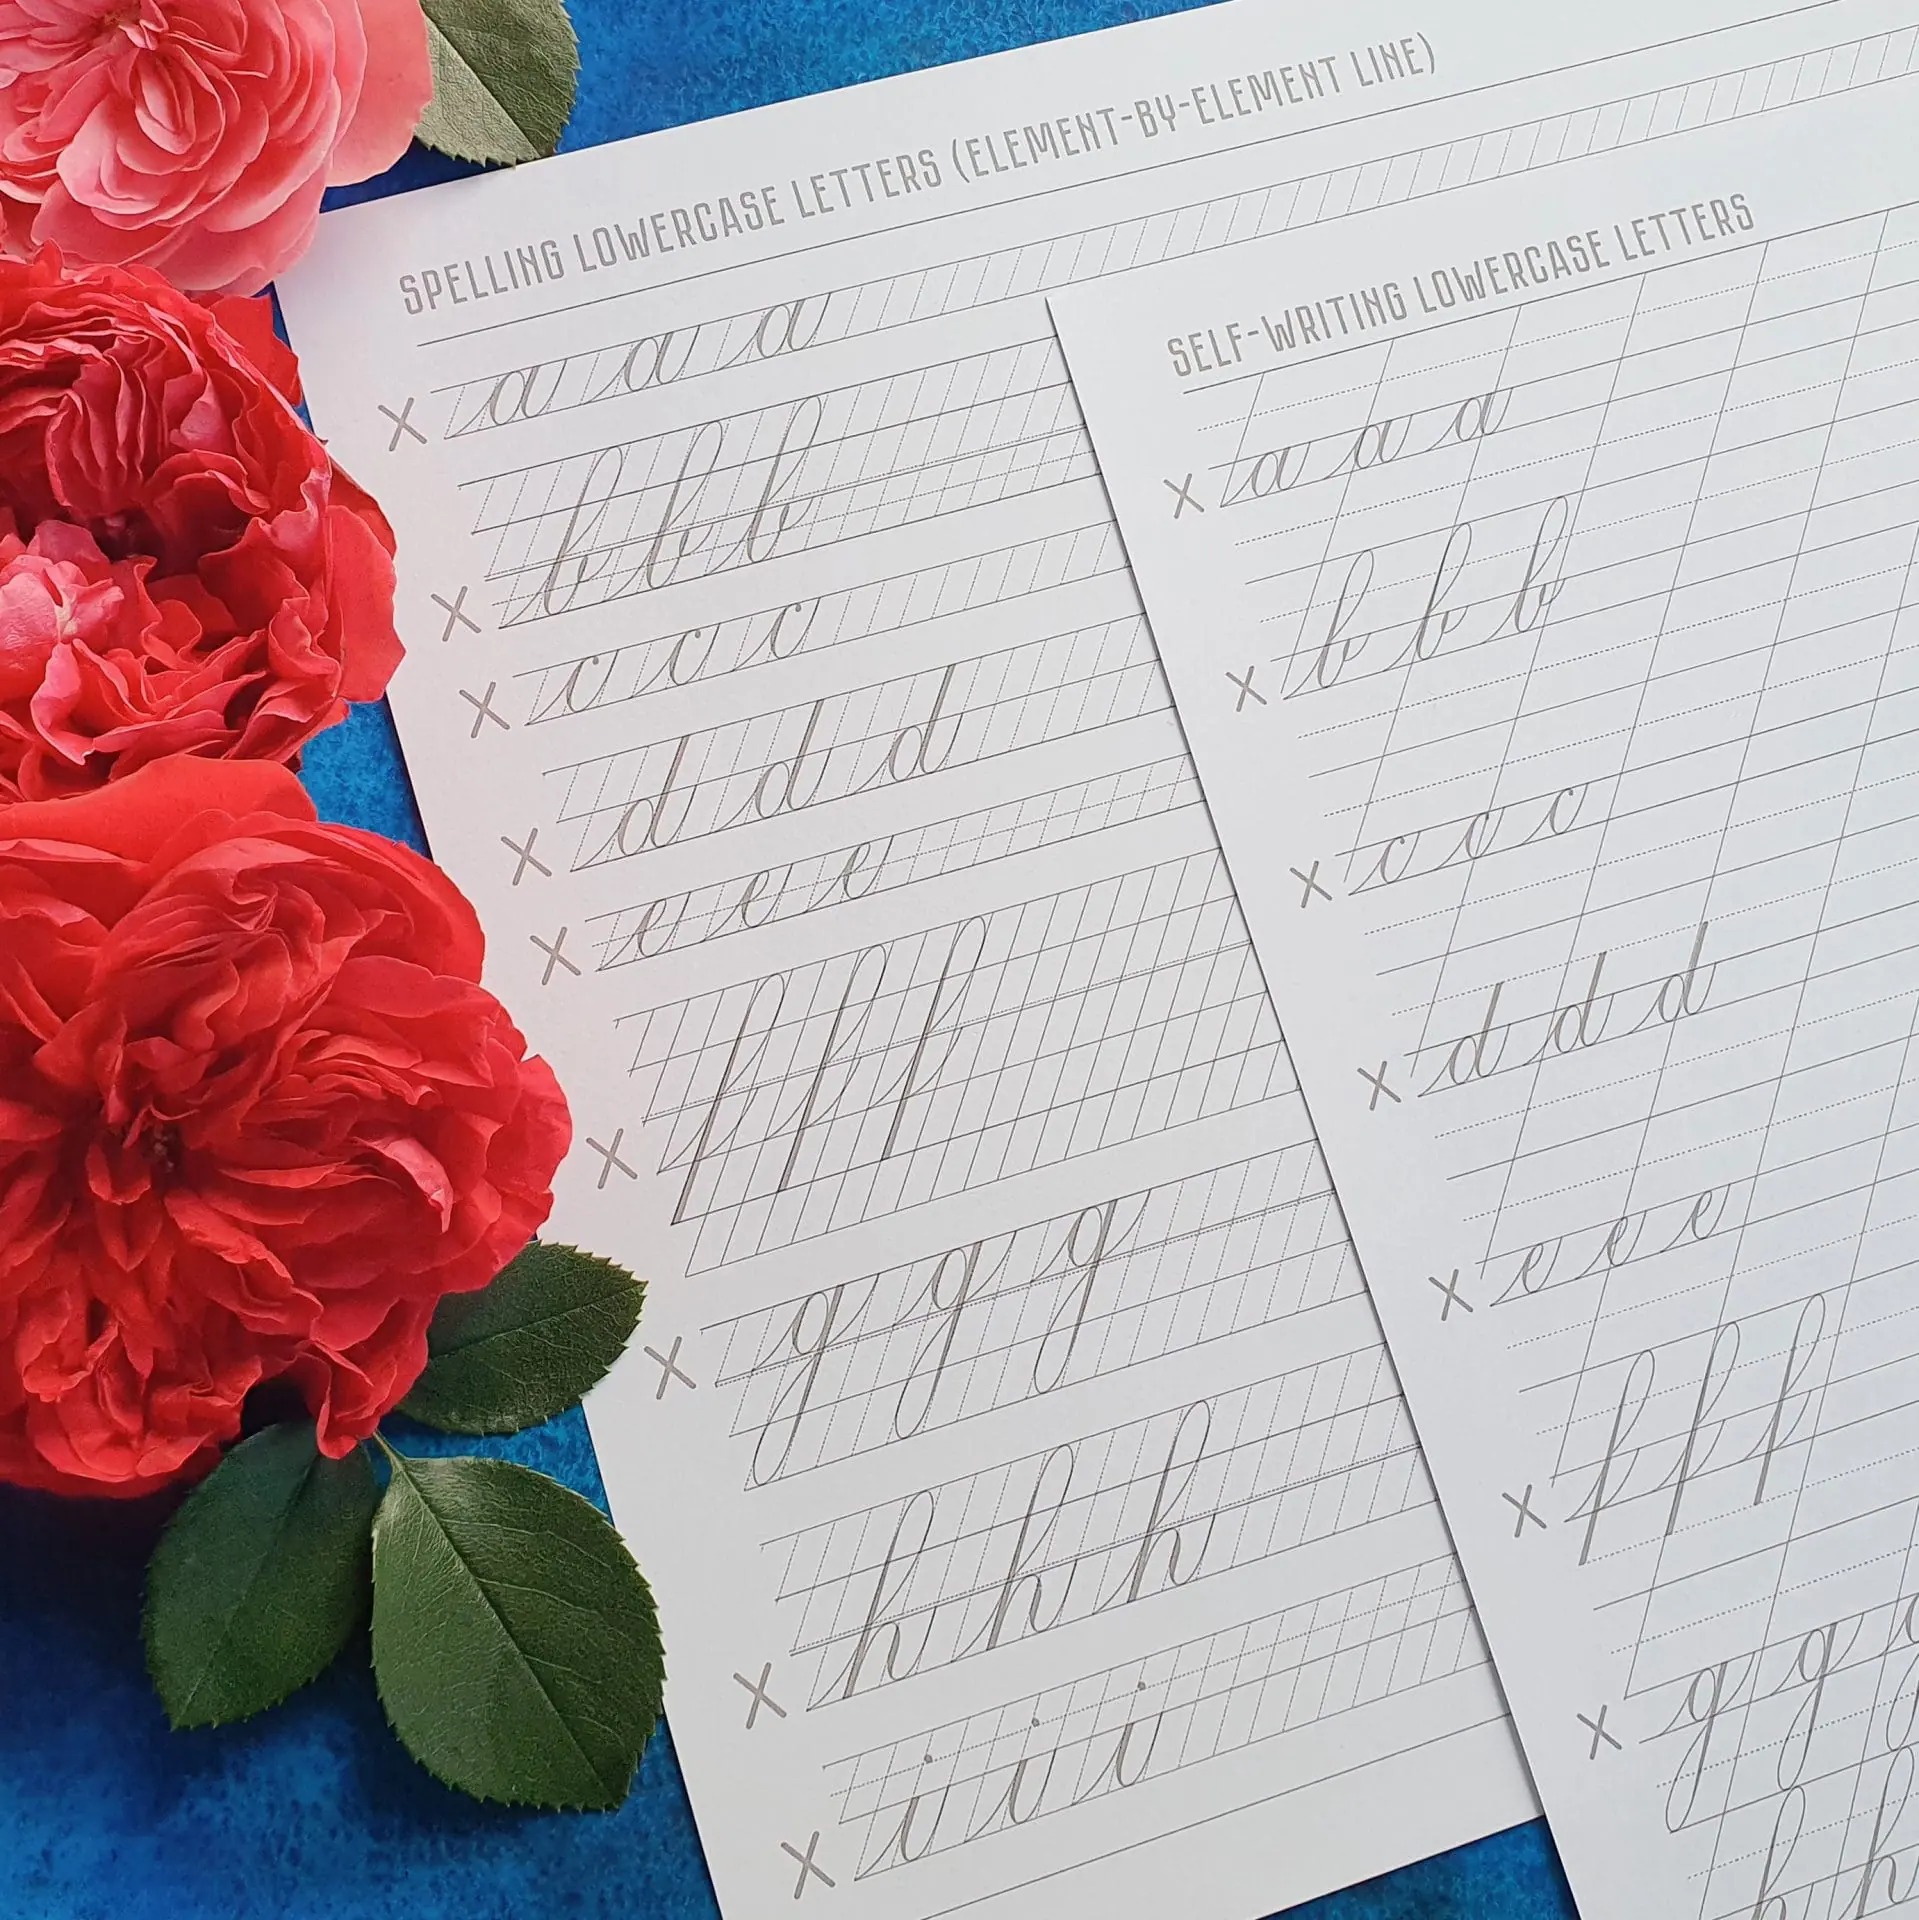 SPELLING LOWERCASE LETTERS (ELEMENT-BY-ELEMENT LINE)
X a a a
X b b b
X c c c
X d d d
X e e e
X f f f
X g g g
X h h h
X i i i
SELF-WRITING LOWERCASE LETTERS
X a a a
X b b b
X c c c
X d d d
X e e e
X f f f
X g g g
h h